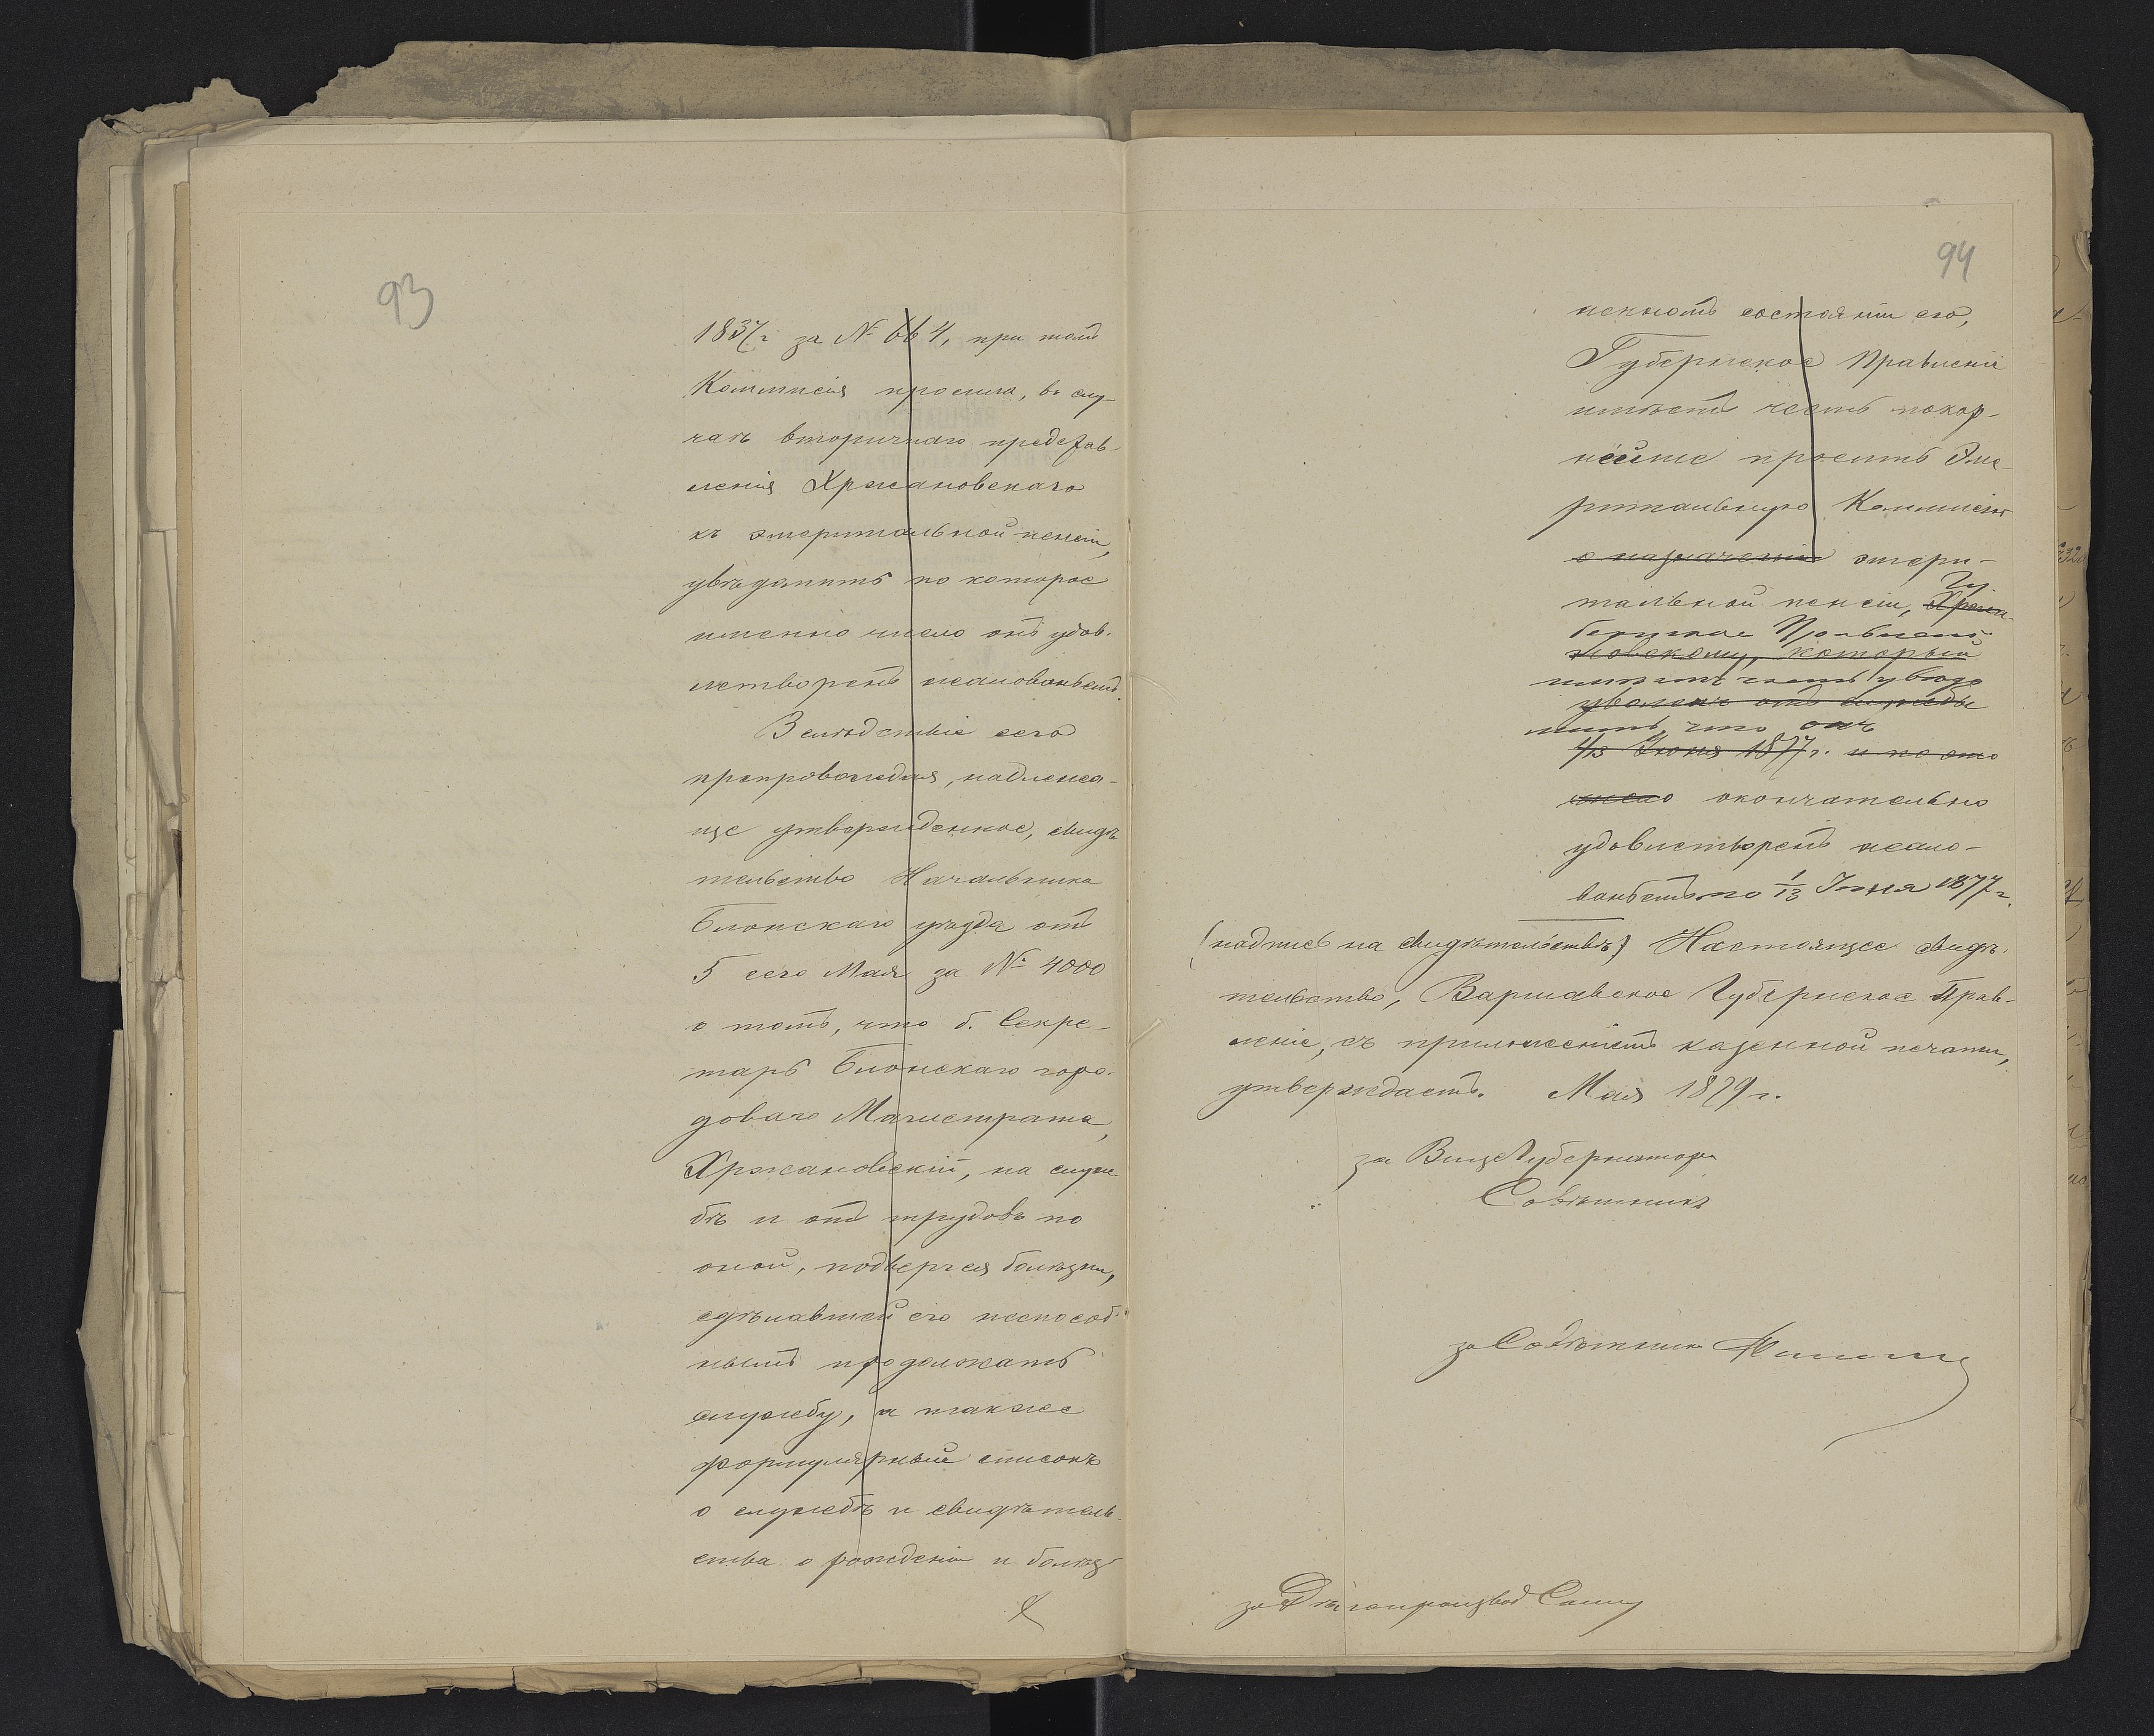 93
1837 г за № 664, при томъ
Коммисія просила, въ слу-
чаѣ вторичнаго представ-
ленія Хржановскаго
къ эмеритальной пенсіи,
увѣдомить по которое
именно число онъ удов-
летворенъ жалованьемъ.
Вслѣдствіе сего
препровождая, надлежа-
ще утвержденное, свидѣ
тельство Начальника
Блонскаго уѣзда отъ
5 сего Мая за № 4000
о томъ, что б. Секре-
тарь Блонскаго горо-
доваго Магистрата,
Хржановскій, на служ
бѣ и отъ трудовъ по
оной, подвергся болѣзни,
сдѣлавшей его неспособ-
нымъ продолжать
службу, а также
формулярный списокъ
о службѣ и свидѣтель-
ства о рожденіи и болѣз-
94
неномъ состояніи его,
Губернское Правленіе
имѣетъ честь покор-
нѣйше просить Эме-
ритальную Коммисію
о назначеніи эмери-
тальной пенсіи, Хржа-
Гу
бернское Правленіе
новскому, который
имѣетъ честь увѣдо
уволенъ отъ службы
мить, что онъ
1/13 Іюня 1877 г. и по это
число окончательно
удовлетворенъ жало-
ваньемъ по 1/13 Іюня 1877 г.
(надпись на свидѣтельствѣ) Настоящее свидѣ-
тельство, Варшавское Губернское Прав-
леніе, съ приложеніемъ казенной печати,
утверждаетъ. Мая 1879 г.
за Вице Губернатора
Совѣтникъ
за Совѣтника
за Дѣлопроизвод